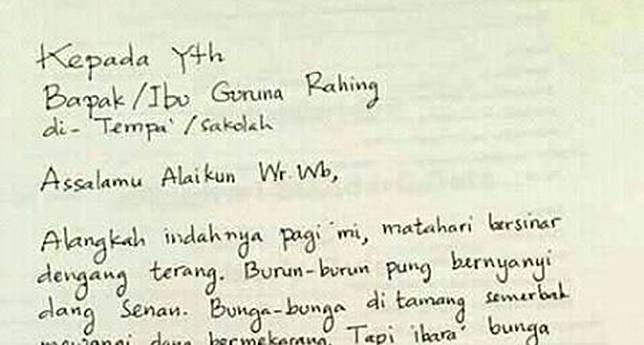 Kepada Yth
Bapak/Ibu Guruna Rahing
di- Tempa' /sakolah
Assalamu Alaikun Wr. Wb,
Alangkah indahnya pagi mi, matahari bersinar
dengang terang. Burun-burun pung bernyanyi
dang Senan. Bunga-bunga di tamang semerbak
mewangi dang bermekarang. Tapi ibara' bunga